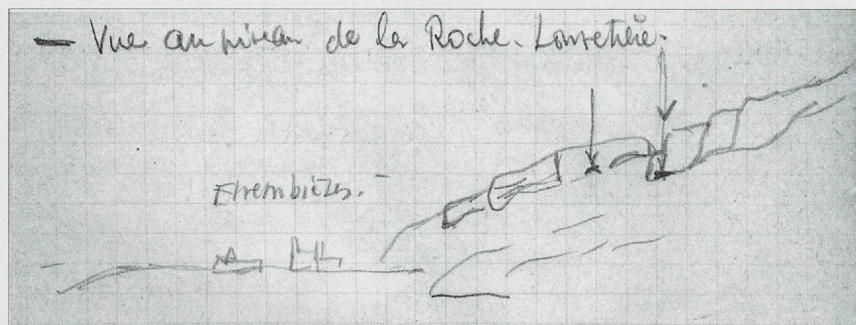 — Vue au niveau de la Roche-Louvetière.
Etrembières.